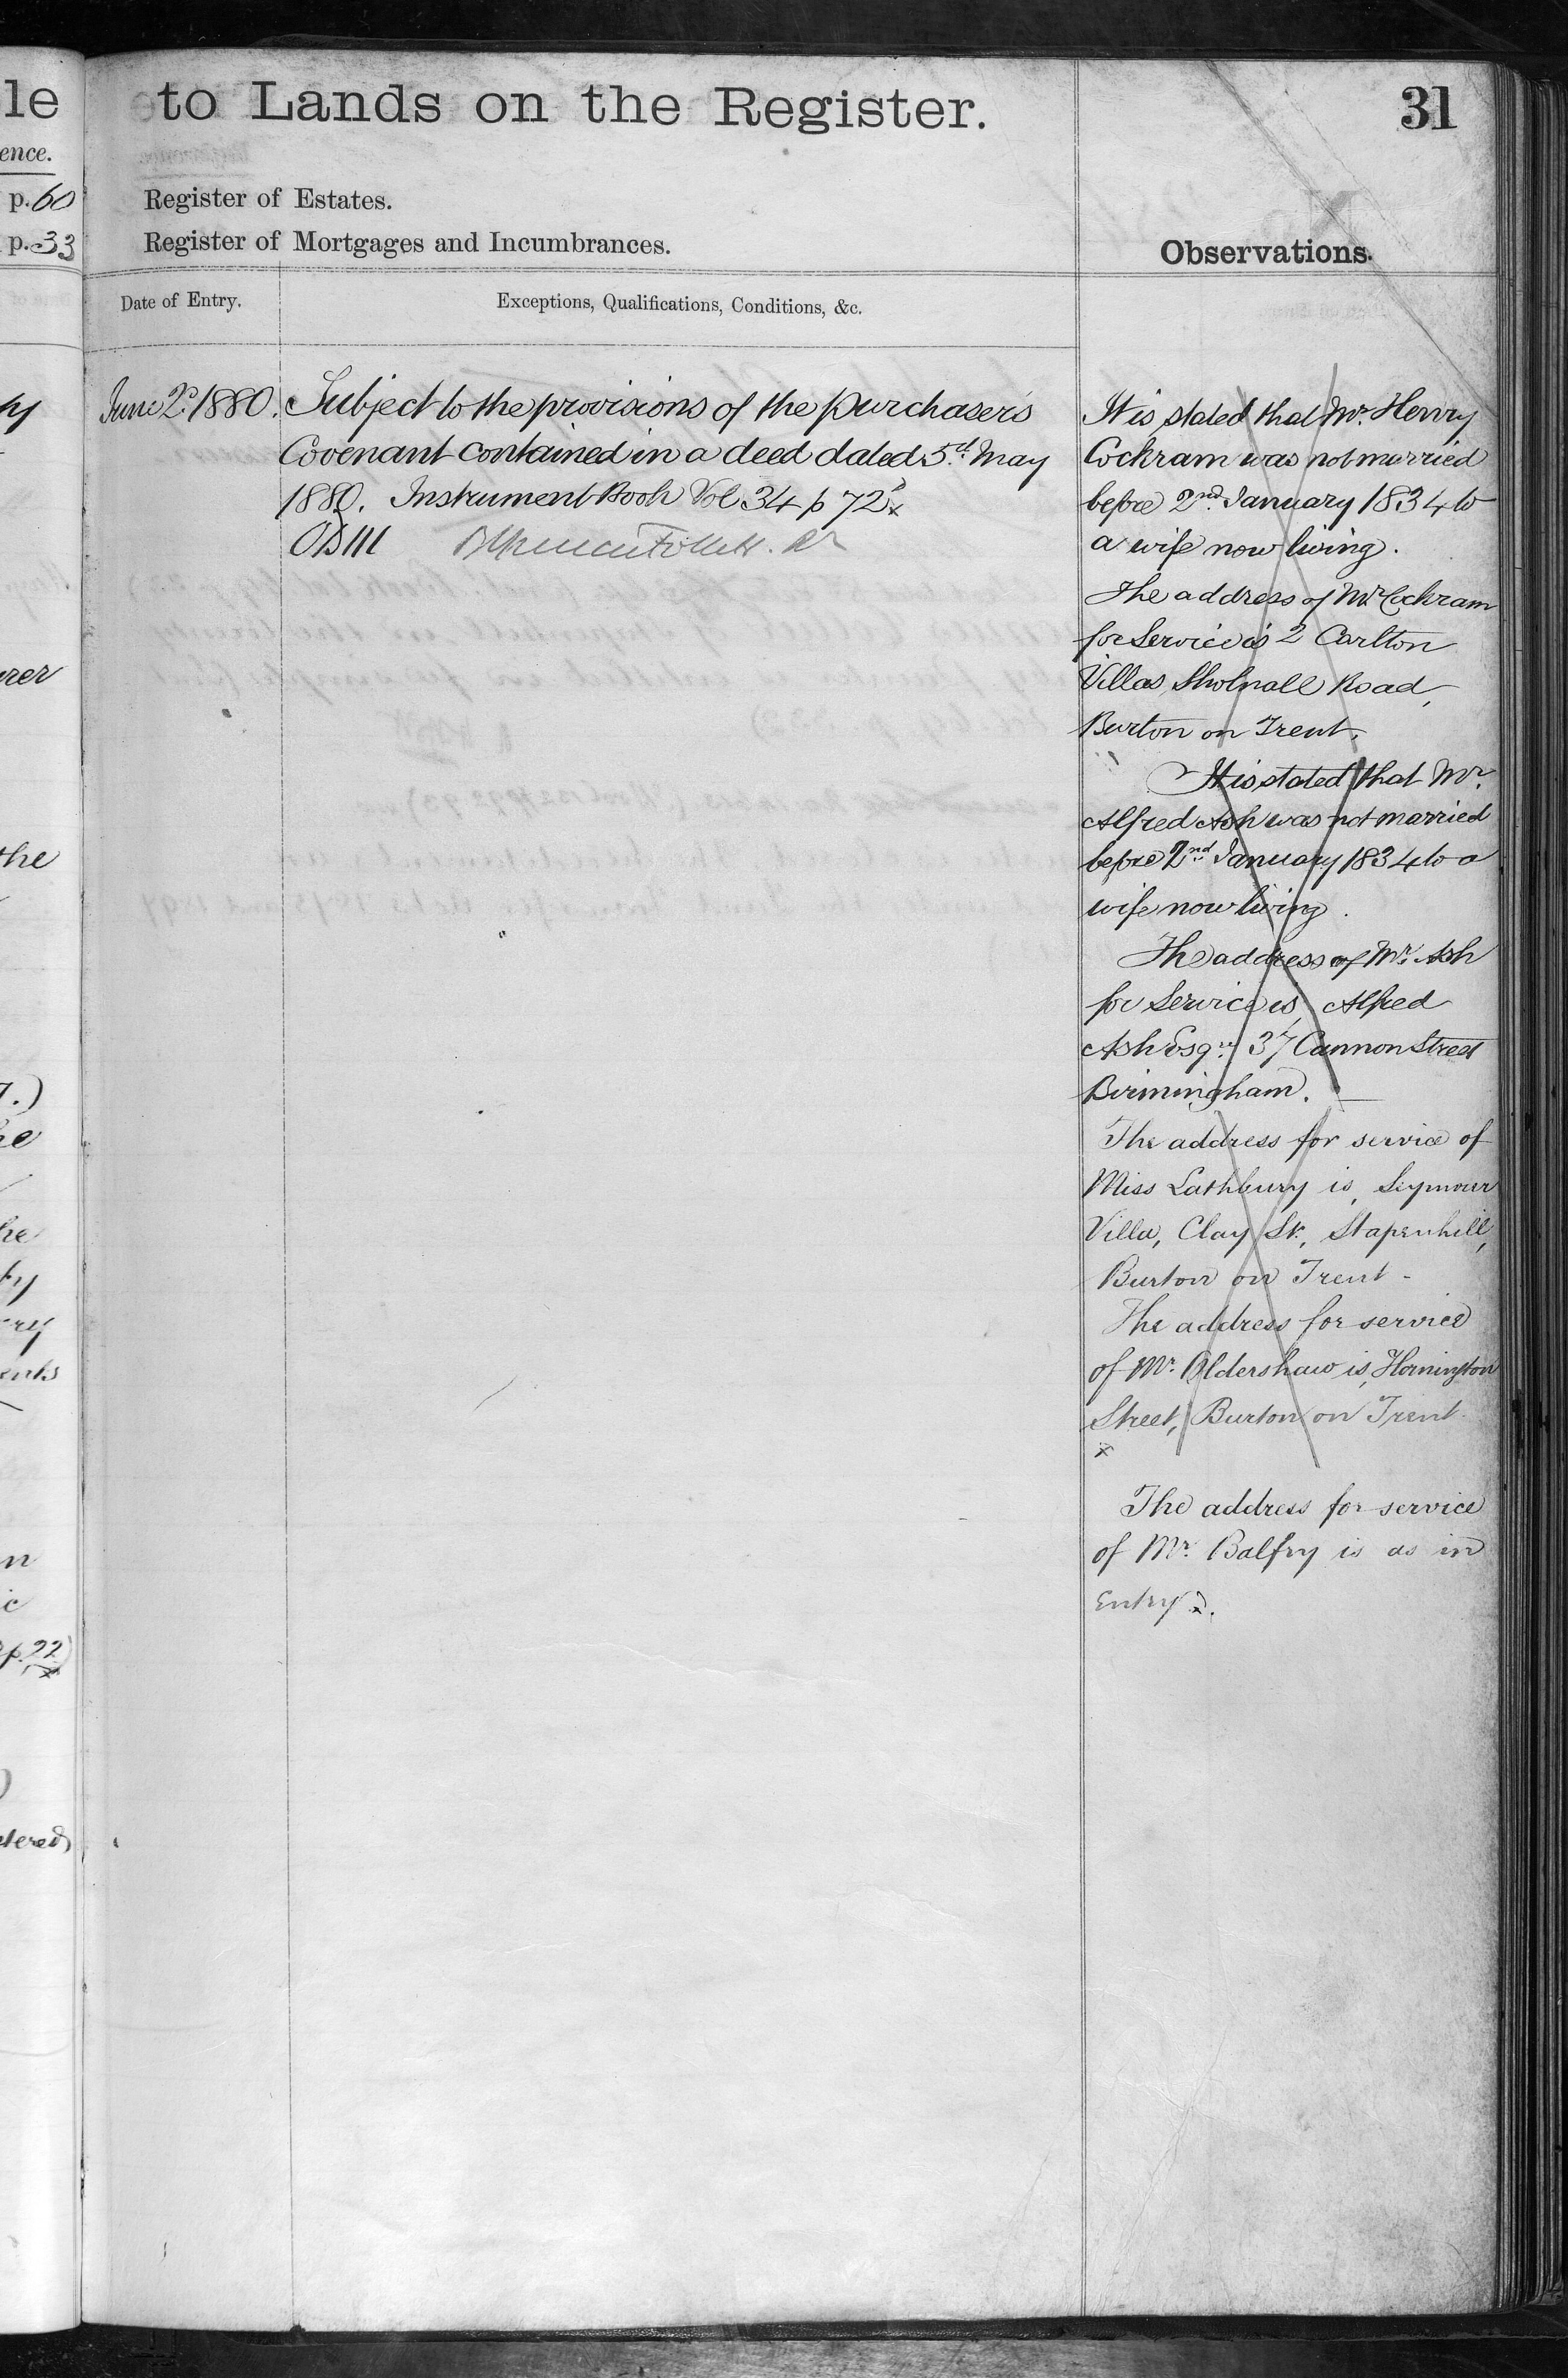 le
ence.
p. 60
p. 33
to Lands on the Register.
31
Register of Estates.
Register of Mortgages and Incumbrances.
Observations.
Date of Entry.
Exceptions, Qualifications, Conditions, &c.
June 2d 1880.
Subject to the provisions of the purchaser's
Covenant contained in a deed dated 5th May
1880. Instrument Book Vol 34 p 72
It is stated that Mr. Henry
Cockram was not married
before 2nd January 1834 to
a wife now living.
The address of Mr Cockram
for Service is 2 Carlton
Villas, Shobnall Road,
Burton on Trent.
It is stated that Mr.
Alfred Ash was not married
before 2nd January 1834 to a
wife now living.
The address of Mr. Ash
for Service is, Alfred
Ash Esqre. 37 Cannon Street
Birmingham.
The address for service of
Miss Lathbury is, Seymour
Villa, Clay St., Stapenhill,
Burton on Trent -
The address for service
of Mr. Oldershaw is, Horninglow
Street, Burton on Trent.
x
The address for service
of Mr. Balfry is as in
Entry
the
he
he
ry
ents
p. 22)